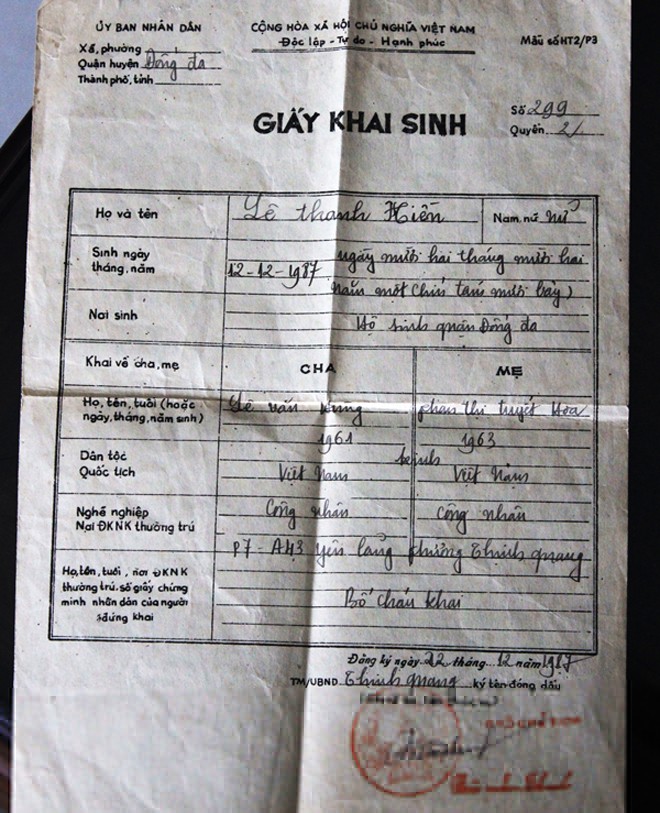 ỦY BAN NHÂN DÂN
Xã, phường
Quận huyện Đống đa
Thành phố, tỉnh
CỘNG HÒA XÃ HỘI CHỦ NGHĨA VIỆT NAM
Độc lập - Tự do - Hạnh phúc
Mẫu số HT2/P3
GIẤY KHAI SINH
Số 299
Quyển 2/
Họ và tên Lê thanh Hiền Nam, nữ nữ
Sinh ngày tháng, năm 12-12-1987 ngày mười hai tháng mười hai
năm một chín tám mươi bảy)
Nơi sinh Hộ sinh quận Đống đa
Khai về cha, mẹ CHA MẸ
Họ, tên, tuổi (hoặc ngày, tháng, năm sinh) Lê văn phan thị tuyết Hoa
1961 1963
Dân tộc kinh
Quốc tịch Việt Nam Việt Nam
Nghề nghiệp Công nhân công nhân
Nơi ĐKNK thường trú P7 - A43 yên lãng phường Thịnh quang
Họ, tên, tuổi, nơi ĐKNK
thường trú, số giấy chứng
minh nhân dân của người
đứng khai
Bố cháu khai
Đăng ký ngày 22 tháng 12 năm 1987
TM/UBND Thịnh quang ký tên đóng dấu